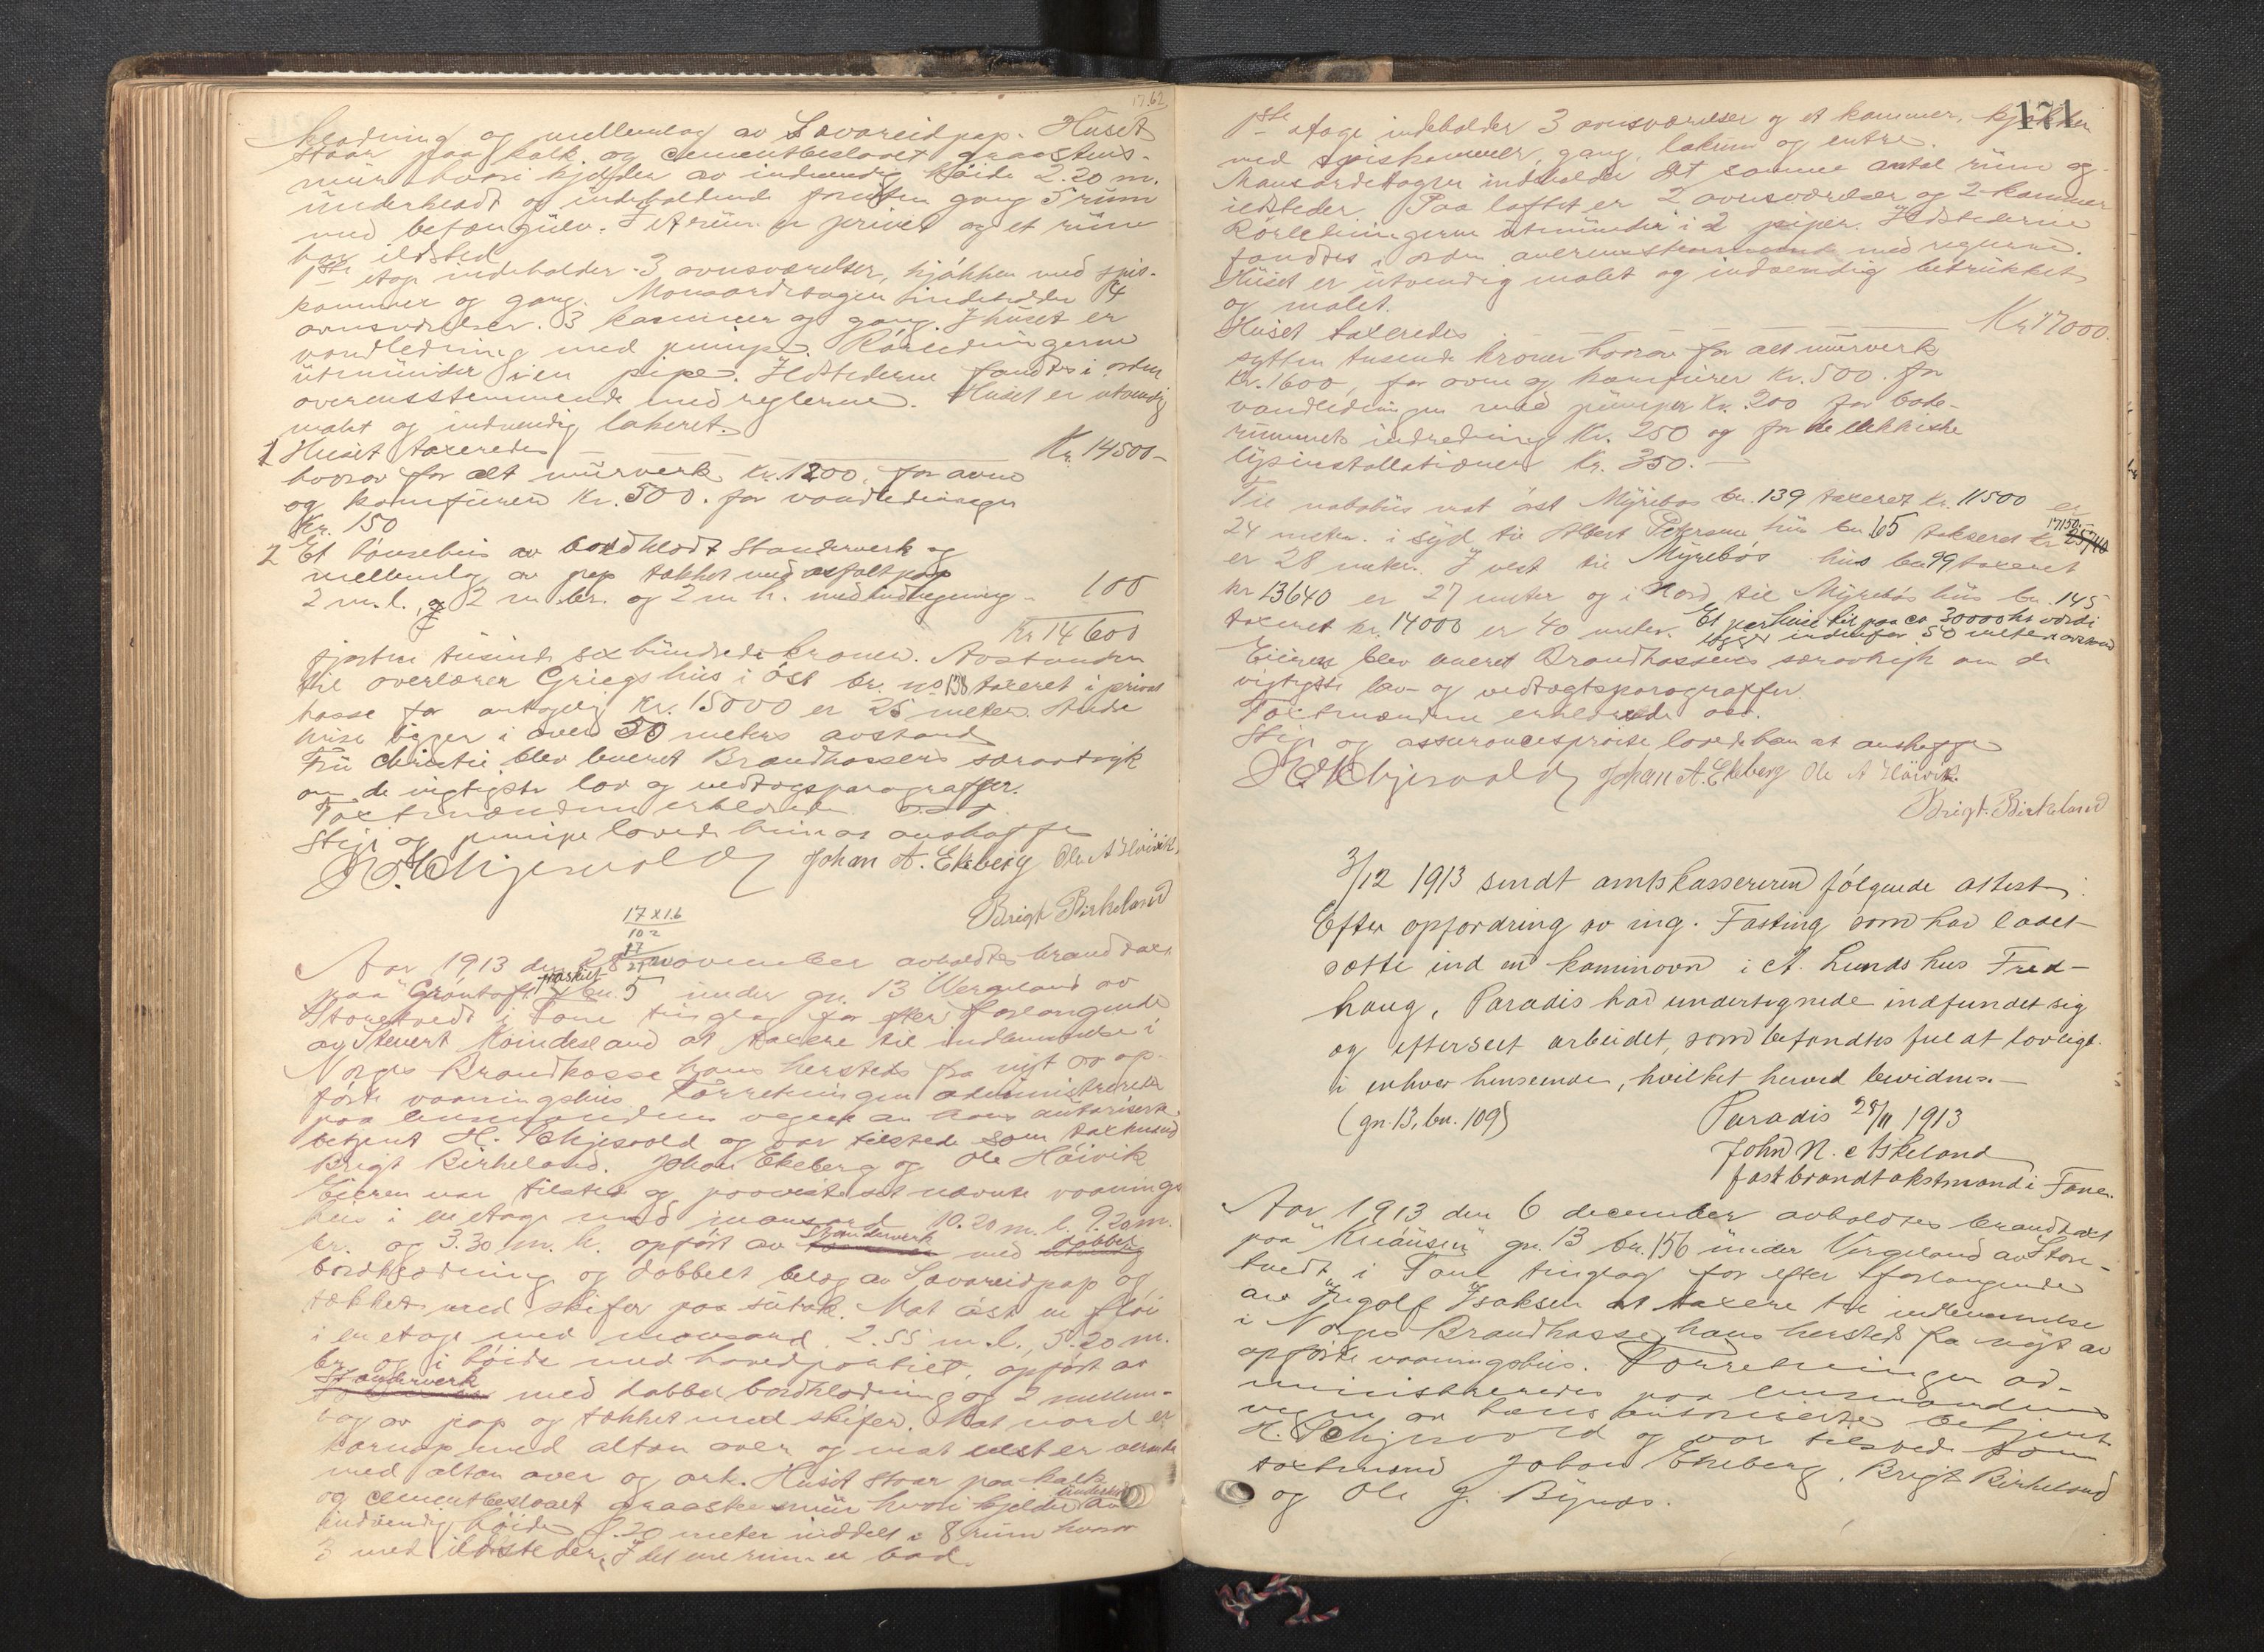 17.62
klædning og mellemlag av Savareidpap. Huset
staar paa kalk og cementbeslaaet graastens-
mur hvori kjelder av indvendig høide 2.20 m.
underkladt og indeholdende foruten gang 5 rum
med betongulv. I et rum er privet og et rum
har ildsted
1ste etage indeholder 3 ovnsværelser, kjøkken med spis-
kammer og gang. Mansardetagen indeholder 4
ovnsværelser. 3 kammer og gang. I huset er
vandledning med pumpe. Rørledningerne
utmunder i en pipe. Ildstederne fandtes i orden
overensstemmende med reglerne. Huset er utvendig
malt og indvendig lakeret.
1 Huset taxeredes Kr. 14500-
hvorav for alt murverk kr. 1200, for ovne
og komfurer Kr. 500. for vandledningen
Kr. 150
2 Et hønsehus av bordklædt standerverk og
mellemlag av pap tækket med asfaltpap
2 m. l., og 2 m. br. og 2 m h. med indhegning - 100
Kr 14600
fjorten tusinde sex hundrede kroner. Avstanden
til overlærer Griegs hus i øst br. no 138 taxeret i privat
kasse for antagelig Kr. 15000 er 25 meter. Andre
huse ligger i over 50 meters avstand
Fru Christie blev leveret Brandkassens særavtryk
om de vigtigste lov og vedtægtsparagraffer.
Taxtmændene erklærede o.s.v.
Stige og pumpe lovede hun at anskaffe
H. Schjesvold Johan A. Ekeberg Ole A Høivik
Brigt Birkeland
17 x 16
102
17
27
Aar 1913 den 28 november avholdtes brandtaxt
paa "Grøntoft" fraskilt bn. 5 under gn. 13 Wergeland av
Storetvedt i Fane tinglag for efter forlangende
av Sievert Møindesland at taxere til indlemmelse i
Norges Brandkasse hans hersteds fra nyt av op-
førte vaaningshus. Forretningen administreredes
paa lensmandens vegne av hans autoriserte
betjent H. Schjesvold og var tilstede som taxtmænd
Brigt Birkeland. Johan Ekeberg og Ole Høivik
Eieren var tilstede og paaviste sit nævnte vaanings
hus i en etage med mansard 10.20 m. l. 9.20 m.
br. og 3.30 m. h. opført av standerverk med dobbel
bordklædning og dobbelt belæg av Savareidpap og
tækket med skifer paa sutak. Mot øst en fløi
i en etage med mansard 2.55 m. l., 5.20 m.
br. og i høide med hovedpartiet, opført av
Standerverk med dobbel bordklædning og 2 mellem-
lag av pap og tækket med skifer. Mot nord er
karnap med altan over og mot vest er veranda
med altan over og ark. Huset staar paa kalk
og cementbeslaaet graastensmur hvori kjelder av
indvendig høide 2.20 meter inddelt i 8 rum hvorav
3 med ildsteder, I det ene rum er bad.
171
1ste etage indeholder 3 ovnsværelser og et kammer, kjøkken
med spiskammer, gang, lokum og entre.
Mansardetagen indeholder det samme antal rum og
ildsteder. Paa loftet er 2 ovnsværelser og 2 kammer
Rørledningerne utmunder i 2 piper. Ildstederne
fandtes i orden overensstemmende med reglerne.
Huset er utvendig malet og indvendig betrukket
og malet.
Huset taxeredes Kr. 17000.
sytten tusende kroner hvorav for alt murverk
Kr. 1600, for ovne og komfurer Kr. 500. for
vandledningen med pumper Kr. 200 for bade-
rummets indredning Kr. 250 og for de elektriske
lysinstallationer Kr. 350.
Til nabohus mot øst Myrebøs bn. 139 taxeret Kr. 11500 er
24 meter. i syd til Albert Petersens hus bn 65 takseret Kr 17150
er 28 meter. I vest til Myrebøs hus bn 99 taxeret
Kr 13640 er 27 meter og i Nord til Myrebøs hus bn. 145
taxeret Kr. 14000 er 40 meter. Et par huse til paa ca 30000 kr værdi
ligger indenfor 50 meters avstand
Eieren blev leveret Brandkassens særavtryk om de
vigtigste lov- og vedtægtsparagraffer.
Taxtmændene erklærede osv.
Stige og assurancesprøite lovede han at anskaffe
H. Schjesvold Johan A. Ekeberg Ole A Høivik.
Brigt. Birkeland
3/12 1913 sendt amtskassereren følgende attest:
Efter opfordring av ing. Fasting som har ladet
sætte ind en kaminovn i A. Lunds hus Fred-
haug, Paradis har undertegnede indfundet sig
og efterseet arbeidet, som befandtes fuldt lovlige
i enhver henseende, hvilket herved bevidnes.—
(gn. 13, bn. 109) Paradis 28/11 1913
John N. Askeland
fast brandtakstmand i Fane.
Aar 1913 den 6 december avholdtes brandtaxt
paa "Knausen" gn. 13 bn. 156 under Vergeland av Store-
tvedt i Fane tinglag for efter forlangende
av Ingolf Isaksen at taxere til indlemmelse
i Norges Brandkasse hans hersteds fra nyt av
opførte vaaningshus. Forretningen ad-
ministreredes paa lensmandens
vegne av hans autoriserte betjent
H. Schjesvold og var tilstede som
taxtmænd Johan Ekeberg, Brigt Birkeland
og Ole J. Bynæs.